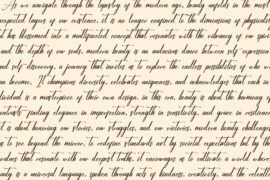 As we navigate through the tapestry of the modern age, beauty unfolds in the most
unexpected layers of our existence. it is no longer confined to the dimensions of physicality
has blossomed into a multifaceted concept that resonates with the vibrancy of our spirits
and the depth of our souls. modern beauty is an audacious dance between self-expression
and self-discovery, a journey that invites us to explore the endless possibilities of who we
can become. It champions diversity, celebrates uniqueness, and acknowledges that each in
dividual is a masterpiece of their own design. in this era, beauty is about the harmony of
contrasts finding elegance in imperfection, strength in sensitivity, and grace in resilience
it is about honoring our stories, our struggles, and our victories. modern beauty challenges
us to see beyond the mirror, to redefine standards not by societal expectations but by the
values that resonate with our deepest truths. it encourages us to cultivate a world where
beauty is a universal language, spoken through acts of kindness, creativity, and the relentless